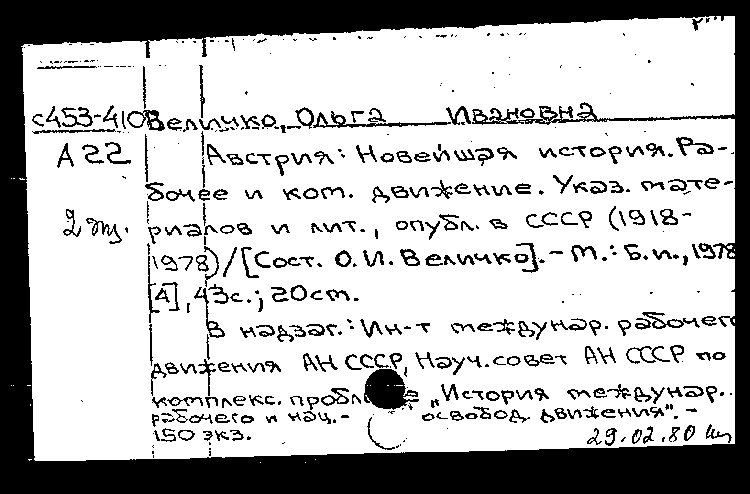 с453-410
Величко, Ольга Ивановна
А22
Австрия: Новейшая история. Ра-
бочее и ком. движение. Указ. мате-
2 экз.
риалов и лит., опубл. в СССР (1918-
1978)/[Сост. О.И. Величко]. - М.: Б.и., 1978
[4], 43с.; 20см.
В надзаг.: Ин-т междунар. рабочего
движения АН СССР, Науч. совет АН СССР по
комплекс. пробл. "История междунар.
рабочего и нац.- освобод. движения". -
150 экз.
29.02.80